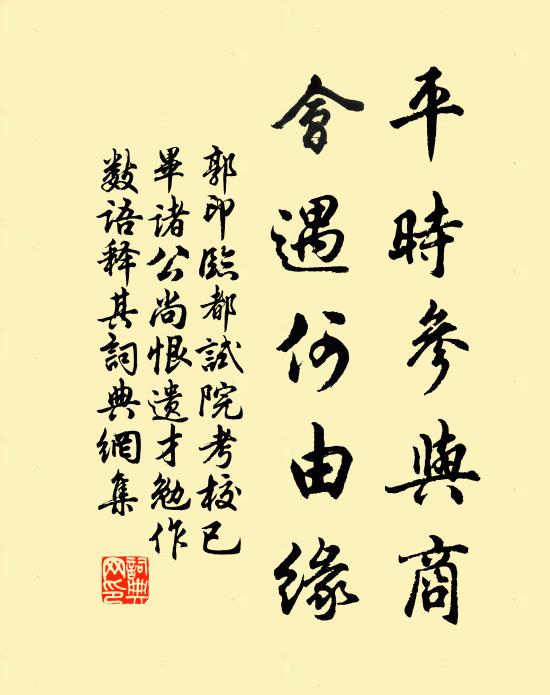 平時參與商
會遇何由緣
郭印臨都試院考校已
畢諸公尚恨遺才勉作
數语释其詞典網集
詞典
网印